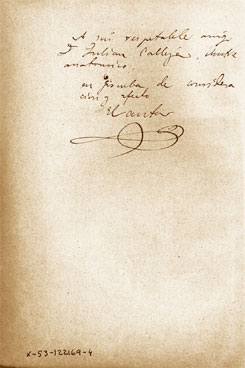 A mi respetable amigo
D. Julian Calleja, ilustre
anatomico,
en prueba de considera
cion y afecto
El autor
X-53-122169-4